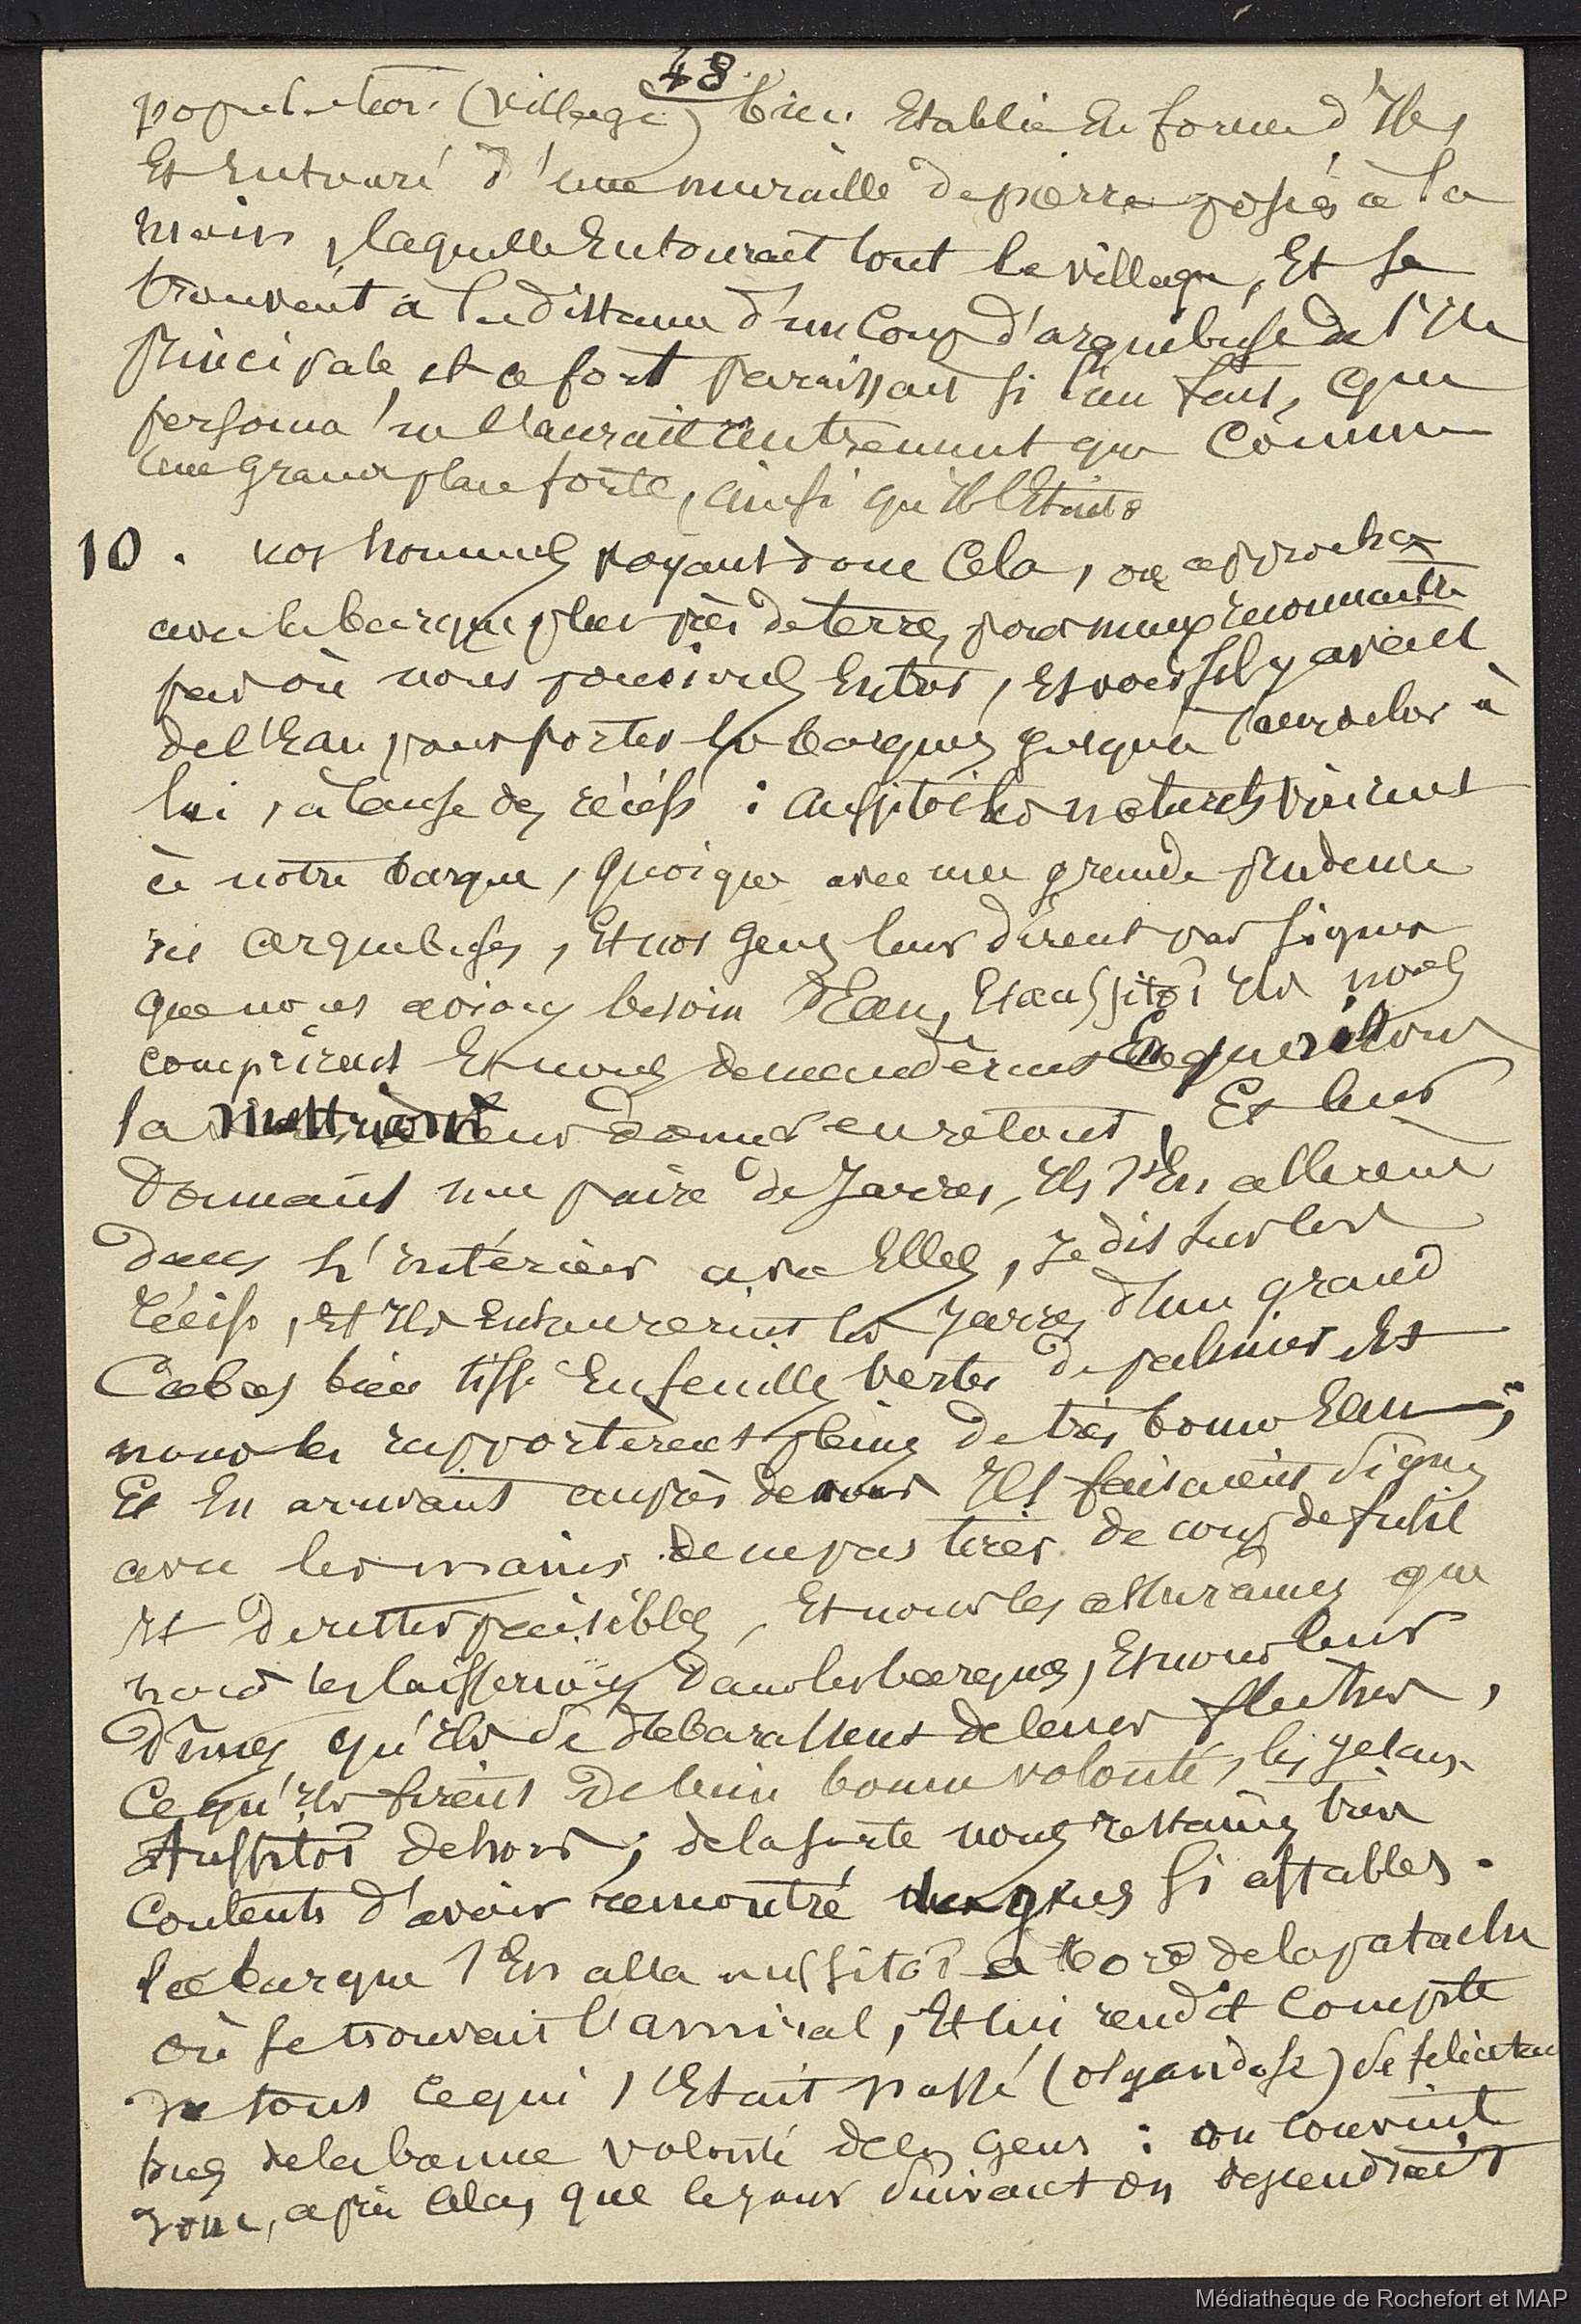 48
population (village) bien Etablie En forme d'Iles
Et Entouré d'une muraille de pierre posés à la
main, laquelle Entourait tout le village, Et se
trouvant à la distance d'un Coup d'arquebuse de l'Ile
principale, et ce fort paraissait si l'on
personne ne l'aurait autrement que Comme
une grande place forte, ainsi qu'Il Etait
10. nos hommes voyant donc Cela, on approcha
avec la barque plus près de terre, pour mieux reconnaitre
par où nous pouvions Entrer, Et voir s'il y avait
de l'Eau pour porter les barques jusqu'à l'
lui, à Cause des récifs : Aussitôt les naturels vinrent
à notre barque, quoique avec une grande prudence
arquebuses, Et nos Gens leur dirent par signes
que nous avions besoin d'Eau, Et aussitôt Ils nous
comprirent Et nous demandèrent
la leur donner en retour, Et leur
donnant une paire de Jarres, Ils s'En allèrent
dans l'intérieur avec Elles, Je dis sur les
récifs, Et Ils Entourèrent les Jarres d'un grand
Cabas bien tissé En feuilles vertes de palmier Et
nous les rapportèrent pleines de très bonne Eau ;
Et En arrivant auprès de nous Ils faisaient signes
avec les mains de ne pas tirer de coups de fusil
Et de rester paisibles, Et nous les assurâmes que
nous les laisserions dans les barques, Et nous leur
dîmes qu'Ils se débarassent de leurs flèches,
Ce qu'Ils firent de bonne volonté, les jetant
Aussitôt dehors ; de la sorte nous restâmes très
Contents d'avoir rencontré des gens si affables.
la barque s'En alla aussitôt à bord de la patache
où se trouvait l'amiral, Et lui rendit Compte
de tout ce qui s'Etait passé
de la bonne volonté de ces Gens : on convint
donc, après Cela, que le jour suivant on descendrait
Médiathèque de Rochefort et MAP